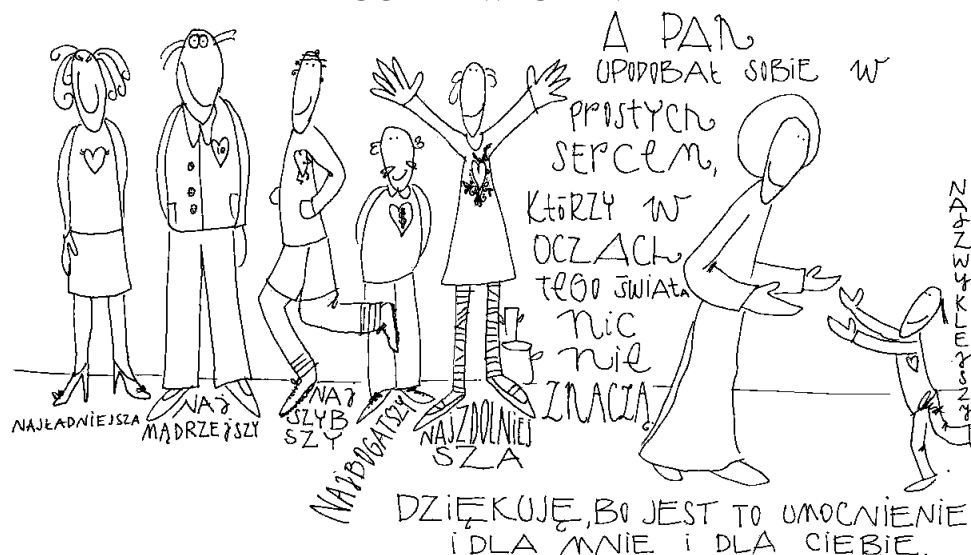 A PAN
UPODOBAŁ SOBIE W
PROSTYCH
SERCEM,
KTÓRZY W
OCZACH
TEGO ŚWIATA
NIC
NIE
ZNACZĄ
NAJŁADNIEJSZA
NAJ
MĄDRZEJSZY
NAJ
SZYB
SZY
NAJBOGATSZY
NAJZDOLNIEJ
SZA
NAJZWYKLEJSZY
DZIĘKUJĘ, BO JEST TO UMOCNIENIE
I DLA MNIE I DLA CIEBIE.